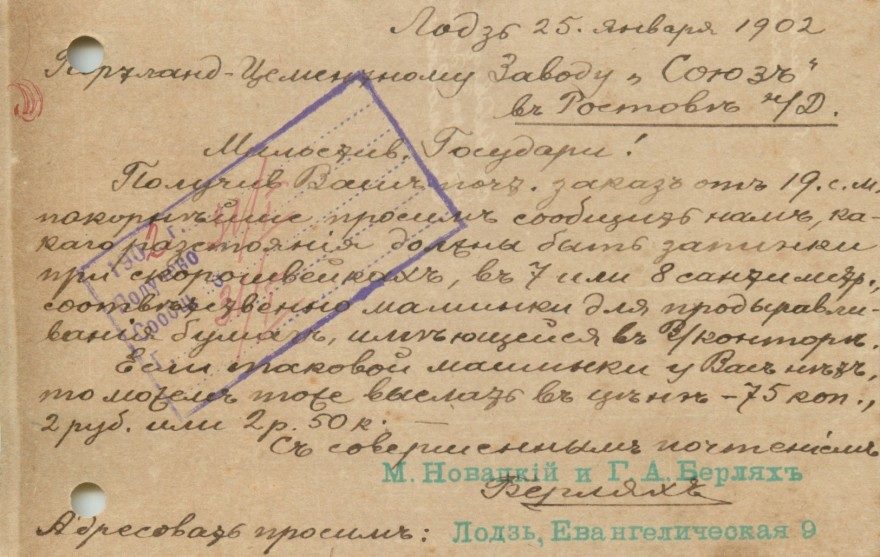 Лодзь 25. января 1902
Портланд-Цементному Заводу „Союзъ“
въ Ростовѣ н/Д.
Милостив. Государи!
Получив Вашъ почт. заказъ отъ 19. с. м.
покорнѣйше просимъ сообщить намъ, ка-
каго разстоянія должны быть
при скорошвейкахъ, въ 7 или 8 сантиметр.,
соотвѣтственно машинки для продыравли-
ванія бумагъ, имѣющейся въ В/конторѣ.
Если таковой машинки у Васъ нѣтъ,
то можемъ тоже выслать въ цѣнѣ – 75 коп.,
2 руб. или 2 р. 50 к.
Съ совершеннымъ почтеніемъ
М. Новацкій и Г. А. Берляхъ
Берляхъ
Адресовать просимъ: Лодзь, Евангелическая 9
1902 г.
Получено
Сообщ.